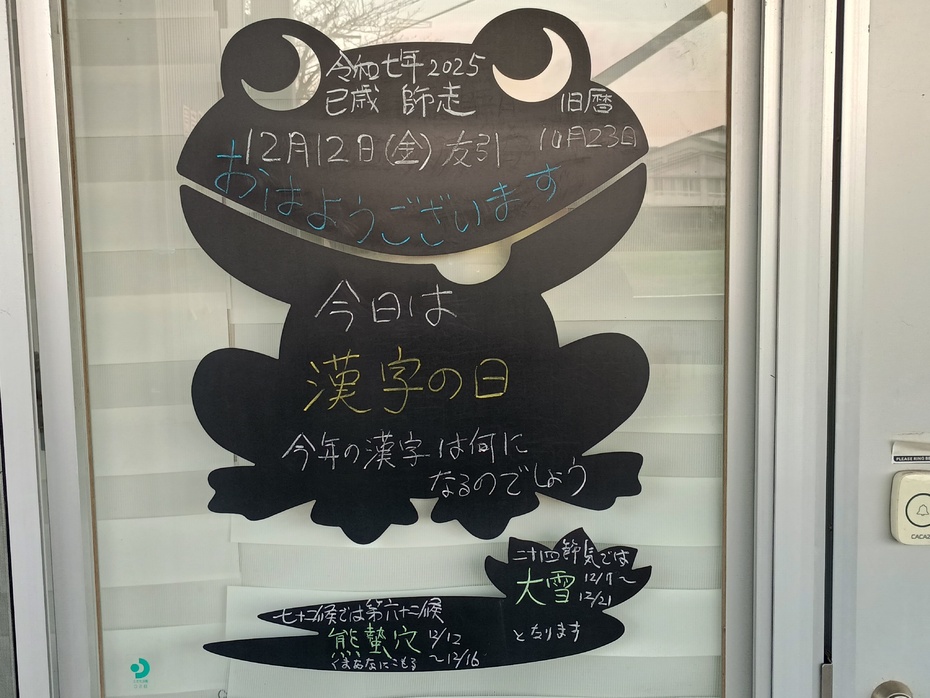 令和七年2025
巳歳 師走
旧暦
12月12日(金)友引 10月23日
おはようございます
今日は
漢字の日
今年の漢字は何に
なるのでしょう
二十四節気では
大雪 12/7~
12/21
となります
七十二候では第六十二候
熊蟄穴 12/12
くまあなにこもる ~12/16
PLEASE RING